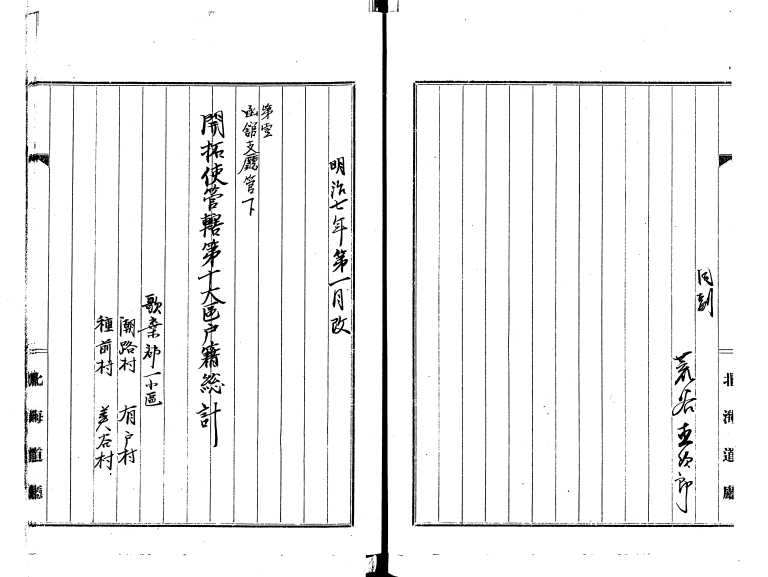 同剖
荒谷直次郎
北海道廳
明治七年第一月改
第壹
函館支廳管下
開拓使管轄第十大区戸籍総計
歌棄郡一小區
潮路村 有戸村
種前村 美谷村
北海道廳